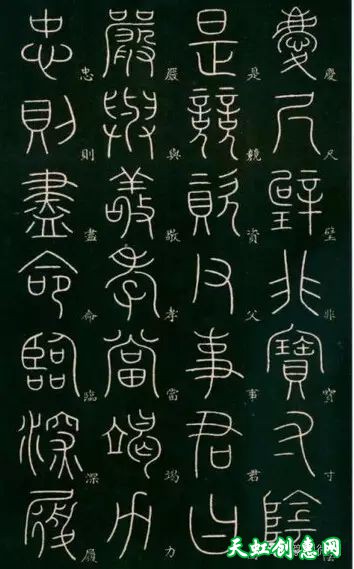 慶尺璧非寶寸陰
慶尺璧非寶寸
是競資父事君曰
是競資父事君
嚴與敬孝當竭力
嚴與敬孝當竭力
忠則盡命臨深履
忠則盡命臨深履
天虹创惠网